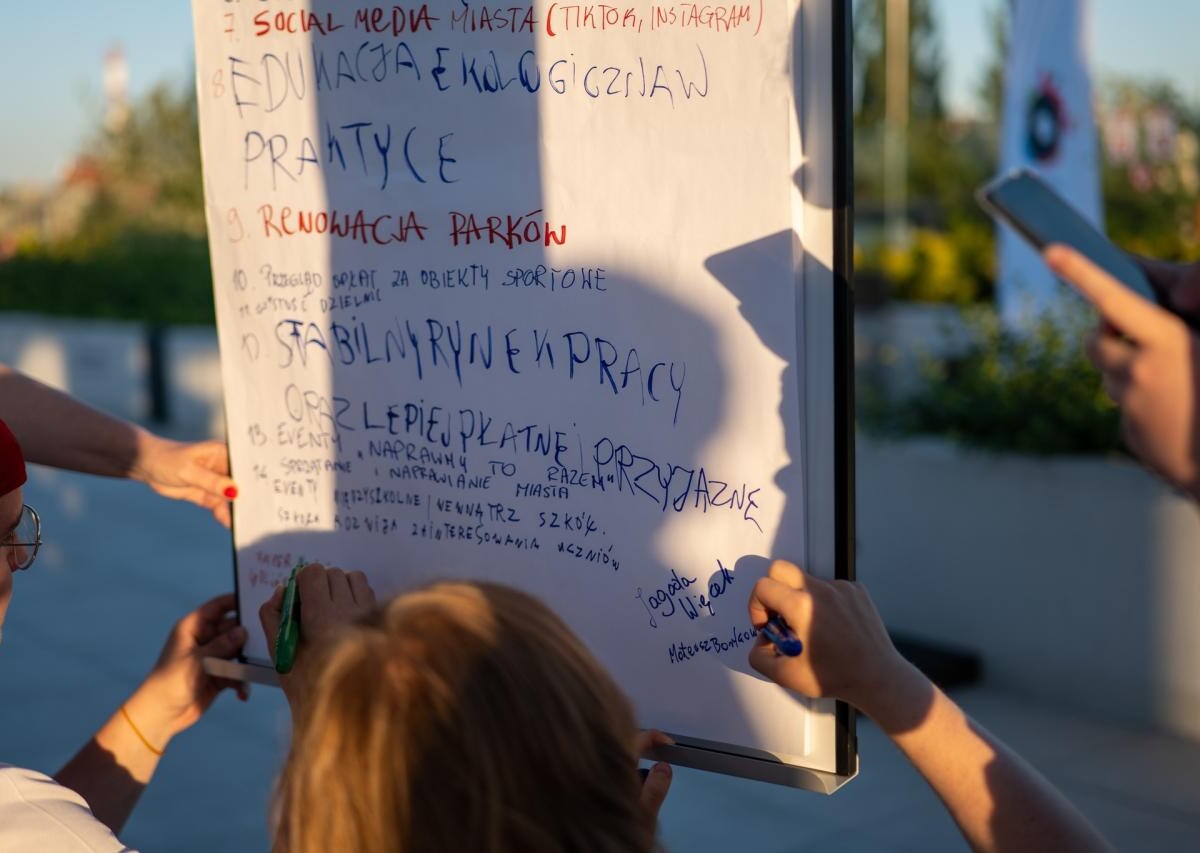 7. SOCIAL MEDIA MIASTA (TIKTOK, INSTAGRAM)
8. EDUKACJA EKOLOGICZNA W
PRAKTYCE
9. RENOWACJA PARKÓW
10. PRZEGLĄD OPŁAT ZA OBIEKTY SPORTOWE
11. DZIELNIC
STABILNY RYNEK PRACY
ORAZ LEPIEJ PŁATNE I PRZYJAZNE
13. EVENTY "NAPRAWMY TO RAZEM"
14 SPRZĄTANIE I NAPRAWIANIE MIASTA
EVENTY MIĘDZYSZKOLNE / WEWNĄTRZ SZKÓŁ.
SZKOŁA ROZWIJA ZAINTERESOWANIA UCZNIÓW
Jagoda
Więcek
Mateusz